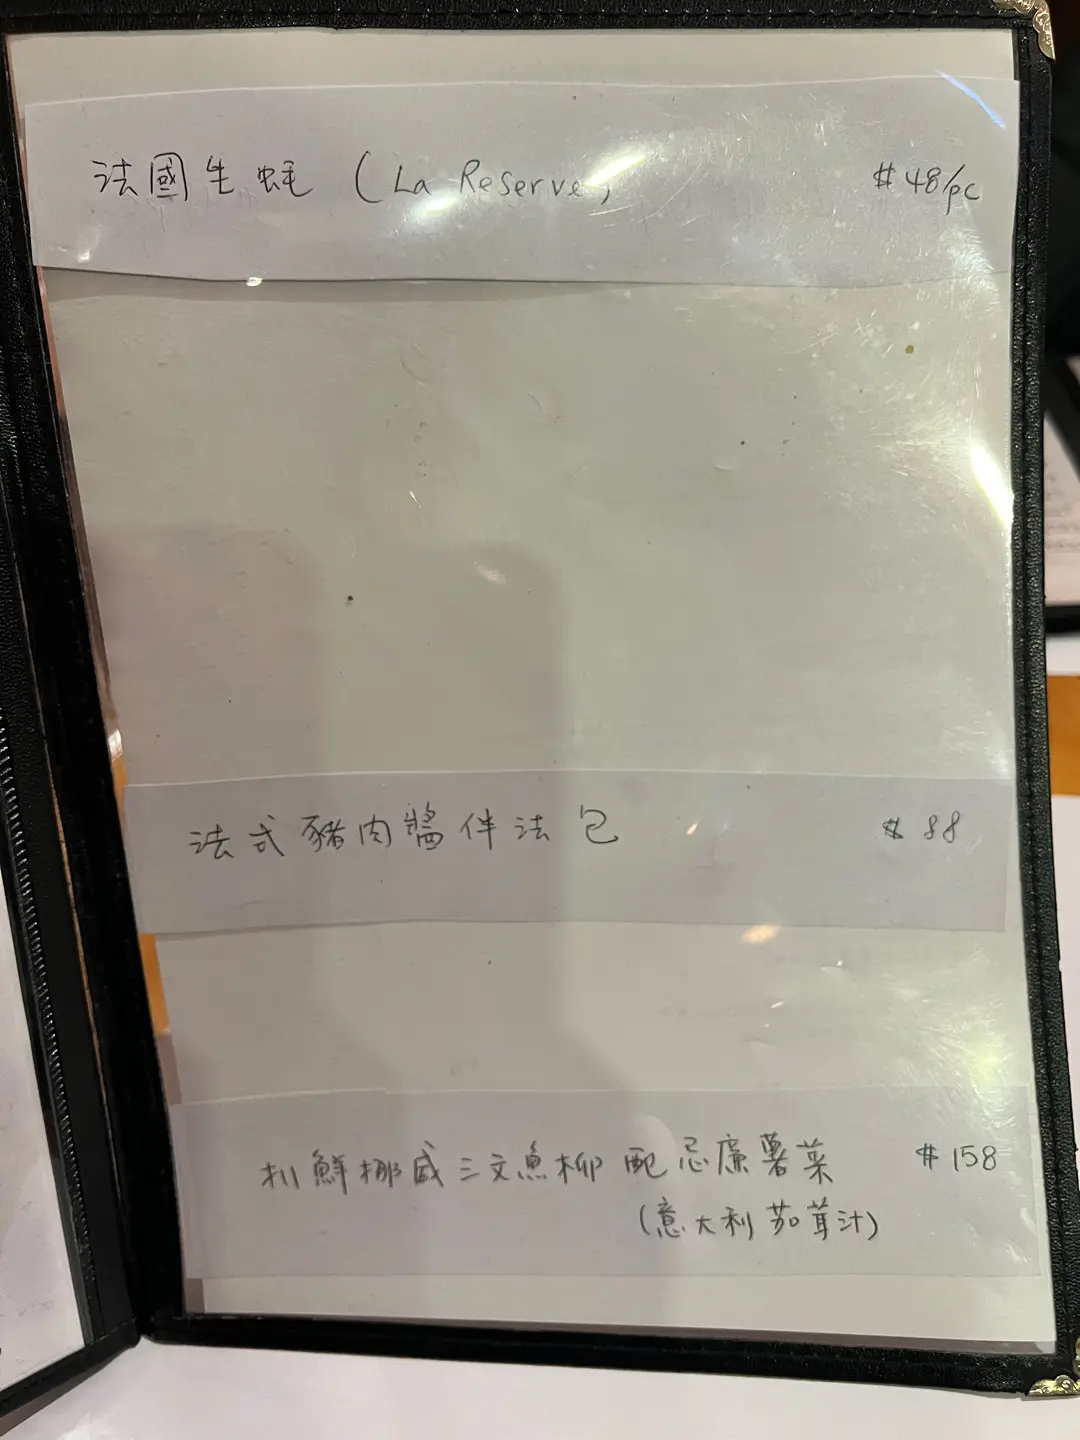 法國生蚝 (La Reserve) $48/pc
法式豬肉醬伴法包 $88
扒鮮挪威三文魚柳配忌廉薯菜 $158
(意大利茄茸汁)